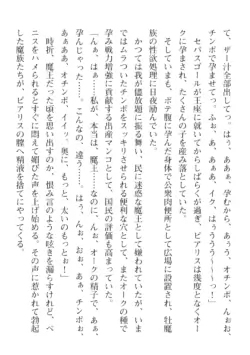 て、ザー汁全部出してっ。はぅ、あぁぁ、孕むから、あぅう、オチンポ、んぉお、
チンポで孕ませてっ。ぷぉ、あ、あぁぁ、イク、はぅうううう～～っ！」
セバスゴールが王座に就いてしばらくが過ぎ、ピアリスは幾度となくオー
クに孕まされ、たくさんの子を産み落としていた。
ボテ腹に孕んだ身体で公衆肉便所として広場に設置され、牡魔
族の性欲処理に日夜励んでいた。
かつては我が儘放題に振る舞い、民に迷惑な魔王として嫌われていたが、いま
ではムラついたチンポをスッキリさせられる便利な穴として、またオークの種で
孕み戦力増強に貢献する出産マンコとして、国民の評価も高まっていた。
「んぉ、はぅ……私が、本当は、魔王……、んぉ、オークの精子で、また
孕んじゃった……。こんなの、違う……っ。はぅ、んぉ、おぉ、あぅ、チンポっ、
あぁぁあ、オチンポ、イイッ、奥に、もっと、太いのもっとぉ！」
時折、魔王だった頃を思い出すのか、恨み言のような呟きを漏らすけれど、ペ
ニスをハメられるとすぐに悶えて媚びた声を上げ始める。その声に惹かれて勃起
した魔族たちが、ピアリスの膣へ精液を捨てにやってくる。